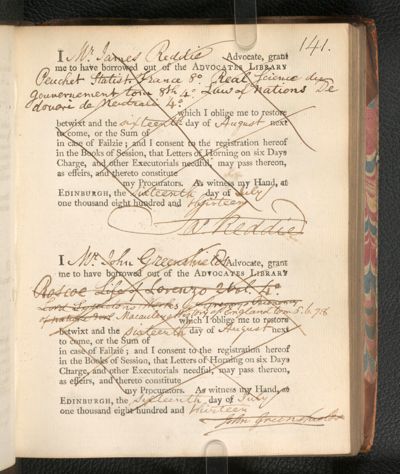 141.
I Mr. James Reddie Advocate, grant
me to have borrowed out of the ADVOCATES LIBRARY
Peuchet Statist. France 8o. Real Science du
gouvernement tom 8th 4o. Law of Nations De
4o.
which I oblige me to restore
betwixt and the sixteenth day of August next
to come, or the Sum of
in case of Failzie; and I consent to the registration hereof
in the Books of Session, that Letters of Horning on six Days
Charge, and other Executorials needful, may pass thereon,
as effeirs, and thereto constitute
my Procurators. As witness my Hand, at
EDINBURGH, the sixteenth day of July
one thousand eight hundred and thirteen
Jas Reddie
I Mr. John Greenshields Advocate, grant
me to have borrowed out of the ADVOCATES LIBRARY
Roscoe Life of Lorenzo 2 vol. 4o.
Lord Works
Macaulay History of England tom 5. 6. 7 8
which I oblige me to restore
betwixt and the sixteenth day of August next
to come, or the Sum of
in case of Failzie; and I consent to the registration hereof
in the Books of Session, that Letters of Horning on six Days
Charge, and other Executorials needful, may pass thereon,
as effeirs, and thereto constitute
my Procurators. As witness my Hand, at
EDINBURGH, the sixteenth day of July
one thousand eight hundred and thirteen
John Greenshields